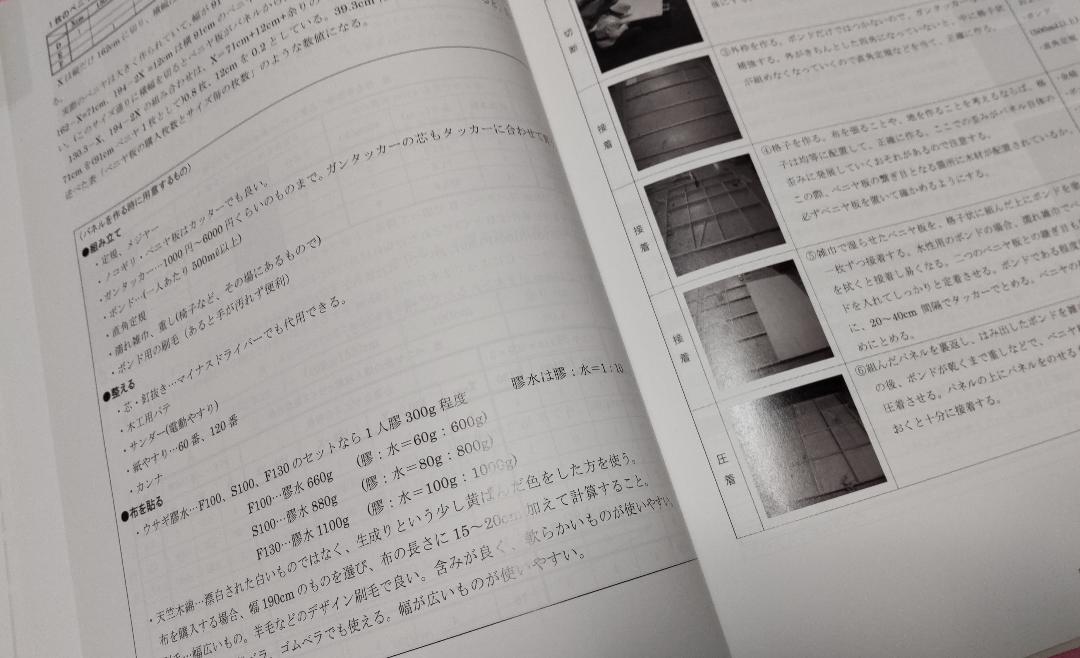 1枚のベニ
Xは縦だけ162cmに切り、横幅
る。
実際のベニヤは大きく作られていて、幅が91
162－X=71cm、194－2X =12cmは横91cmのベニヤ板がパネルからの
い。(このサイズ通りに横幅を切るとベニヤ
130.3－X、194－2Xの組み合わせは、X＝71cm+12cm+余りの
71cmを(91cmベニヤ1枚として)0.8枚、12cmを0.2としている。39.3cmに
述べた表「ベニヤ板の購入枚数とサイズ毎の枚数」のような数値になる。
(パネルを作る時に用意するもの)
●組み立て
・定規、メジャー
・ノコギリ・ベニヤ板はカッターでも良い。
・ガンタッカー…1000円～6000円くらいのものまで。ガンタッカーの芯もタッカーに合わせて買
・ボンド…(一人あたり500mℓ以上)
・直角定規
・濡れ雑巾、重し(椅子など、その場にあるもので)
・ボンド用の刷毛(あると手が汚れず便利)
●整える
・芯・釘抜き…マイナスドライバーでも代用できる。
・木工用パテ
・サンダー(電動やすり)
・紙やすり…60番、120番
・カンナ
●布を貼る
・ウサギ膠水…F100、S100、F130のセットなら1人膠300g程度
膠水は膠：水=1:10
F100…膠水660g (膠：水=60g：600g)
S100…膠水880g (膠：水=80g：800g)
F130…膠水1100g (膠：水=100g：1000g)
・天竺木綿…漂白された白いものではなく、生成りという少し黄ばんだ色をした方を使う。
布を購入する場合、幅190cmのものを選び、布の長さに15～20cm加えて計算すること。
幅広いもの。羊毛などのデザイン刷毛で良い。含みが良く、軟らかいものが使いやすい。
ゴムベラでも使える。幅が広いものが使いやすい。
切断
接着
接着
接着
圧着
③外枠を作る。ボンドだけではつかないので、ガンタッカー
補強する。外がきちんとした四角になっていないと、中に格子状
が組めなくなっていくので直角定規などを当て、正確に作る。
④格子を作る。布を張ることや、地を作ることを考えるならば、格
子は均等に配置して、正確に作る。ここでの歪みがパネル自体の
歪みに発展していくおそれがあるので注意する。
この際、ベニヤ板の繋ぎ目となる箇所に木材が配置されているか、
必ずベニヤ板を置いて確かめるようにする。
⑤雑巾で湿らせたベニヤ板を、格子状に組んだ上にボンドを塗
一枚ずつ接着する。水性用のボンドの場合、濡れ雑巾でベ
を拭くと接着し易くなる。二つのベニヤ板との継ぎ目も
ドを入れてしっかりと定着させる。ボンドである程度
に、20～40cm間隔でタッカーでとめる。ベニヤの
めにとめる。
⑥組んだパネルを裏返し、はみ出したボンドを雑
の後、ボンドが乾くまで重しなどで、ベニヤ
圧着させる。パネルの上にパネルをのせる
おくと十分に接着する。
(500mℓ以上
・直角定規